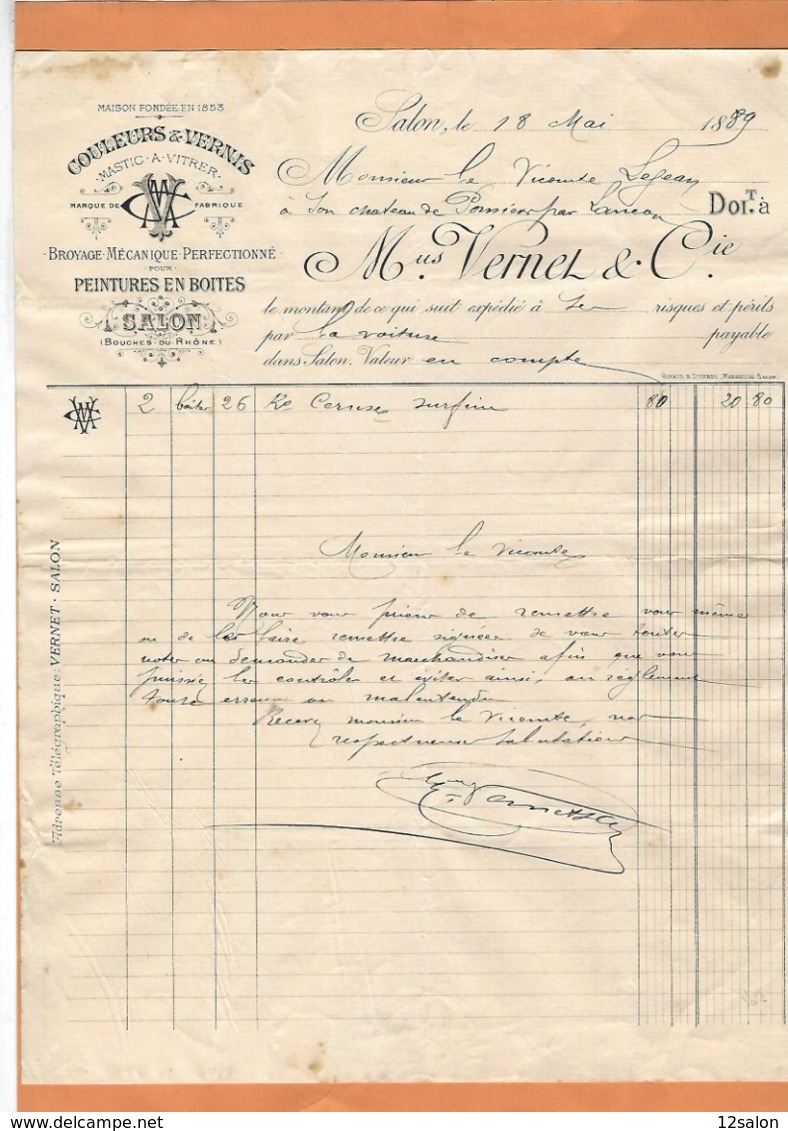 MAISON FONDÉE EN 1853
COULEURS & VERNIS
MASTIC·A·VITRER
MARQUE DE FABRIQUE
BROYAGE·MÉCANIQUE·PERFECTIONNÉ
POUR
PEINTURES EN BOITES
SALON
(BOUCHES-DU-RHÔNE)
Salon, le 18 Mai 1889
Monsieur le Vicomte
à son chateau de par Lancon DOIT.T à
Mus. Vernet & Cie.
le montant de ce qui suit expédié à ses risques et périls
par la voiture payable
dans Salon. Valeur en compte
2 boites 26 Ko Ceruse surfine 80 20 80
Monsieur le Vicomte
Pour vous prier de remettre vous même
ou de les faire remettre signées de vous toutes
notes ou demandes de marchandises afin que vous
puissiez les contrôler et éviter ainsi, au règlement
toute erreur ou malentendu
Recevez monsieur le Vicomte, nos
respectueuses salutations
Adresse Télégraphique·VERNET·SALON
www.delcampe.net
12salon